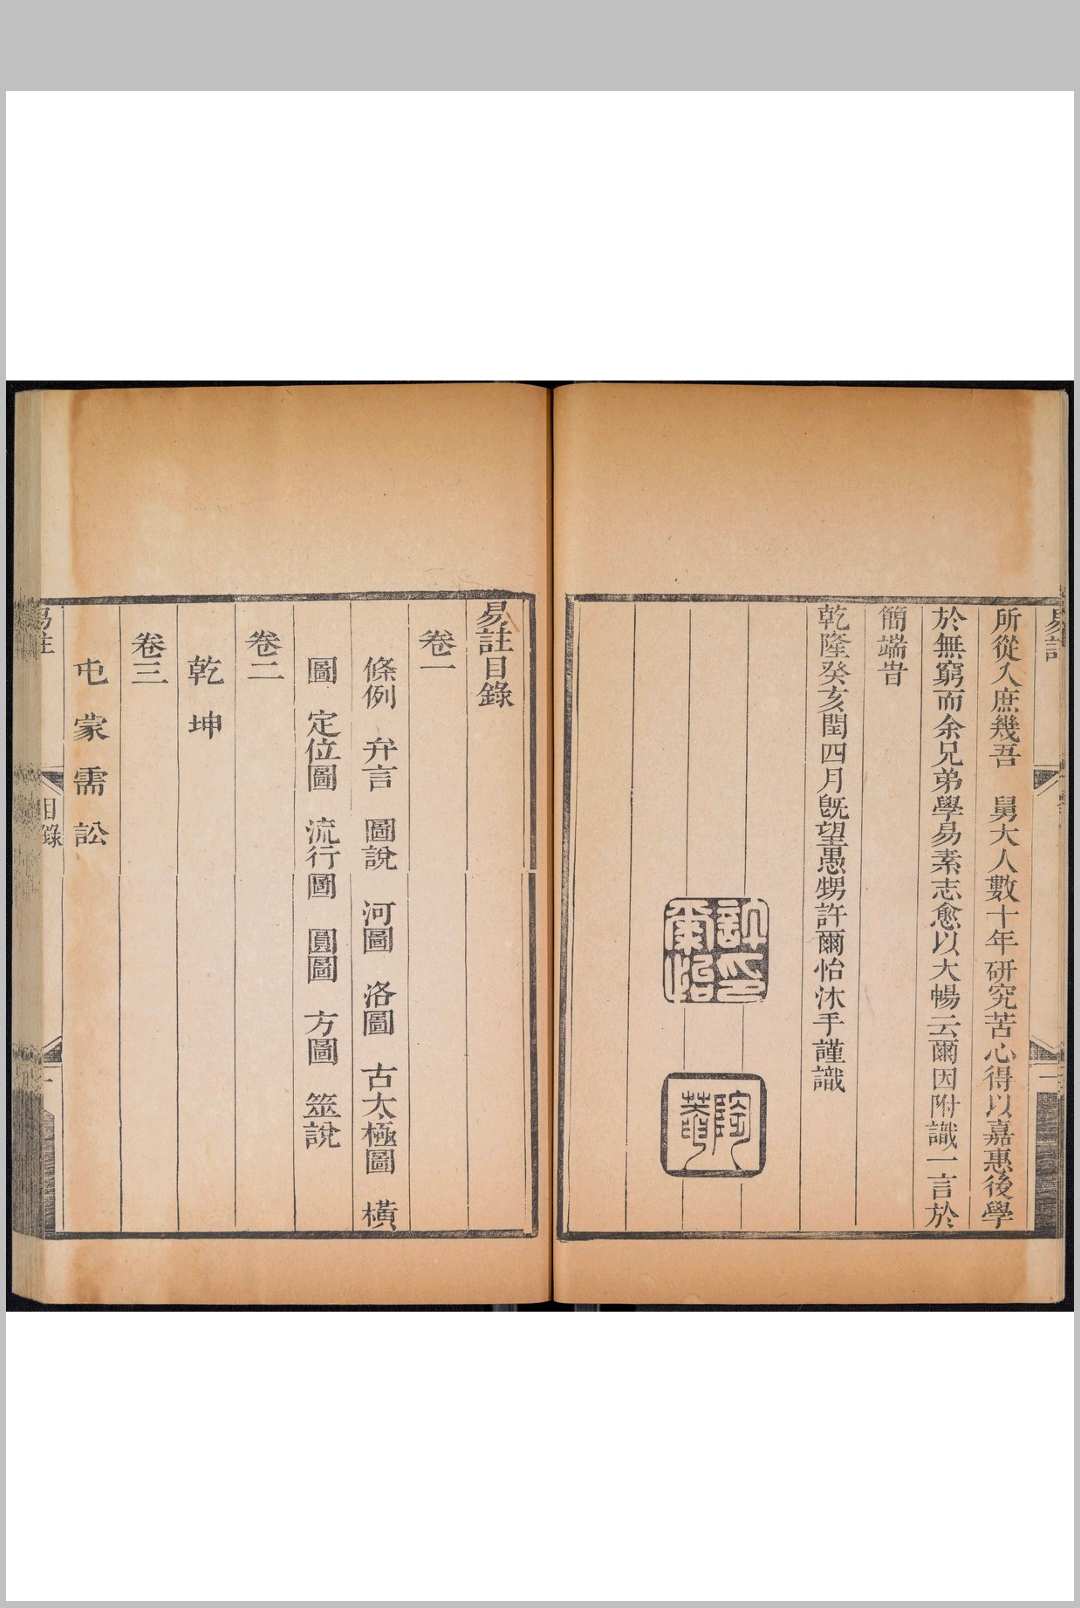 易註
所從入庶幾吾　舅大人數十年研究苦心得以嘉惠後學
於無窮而余兄弟學易素志愈以大暢云爾因附識一言於
簡端旹
乾隆癸亥閏四月旣望愚甥許爾怡沐手謹識
許印爾怡
易註目錄
卷一
條例　弁言　圖說　河圖　洛圖　古太極圖　橫
圖　定位圖　流行圖　圓圖　方圖　筮說
卷二
乾　坤
卷三
屯　蒙　需　訟
易註
目錄
一